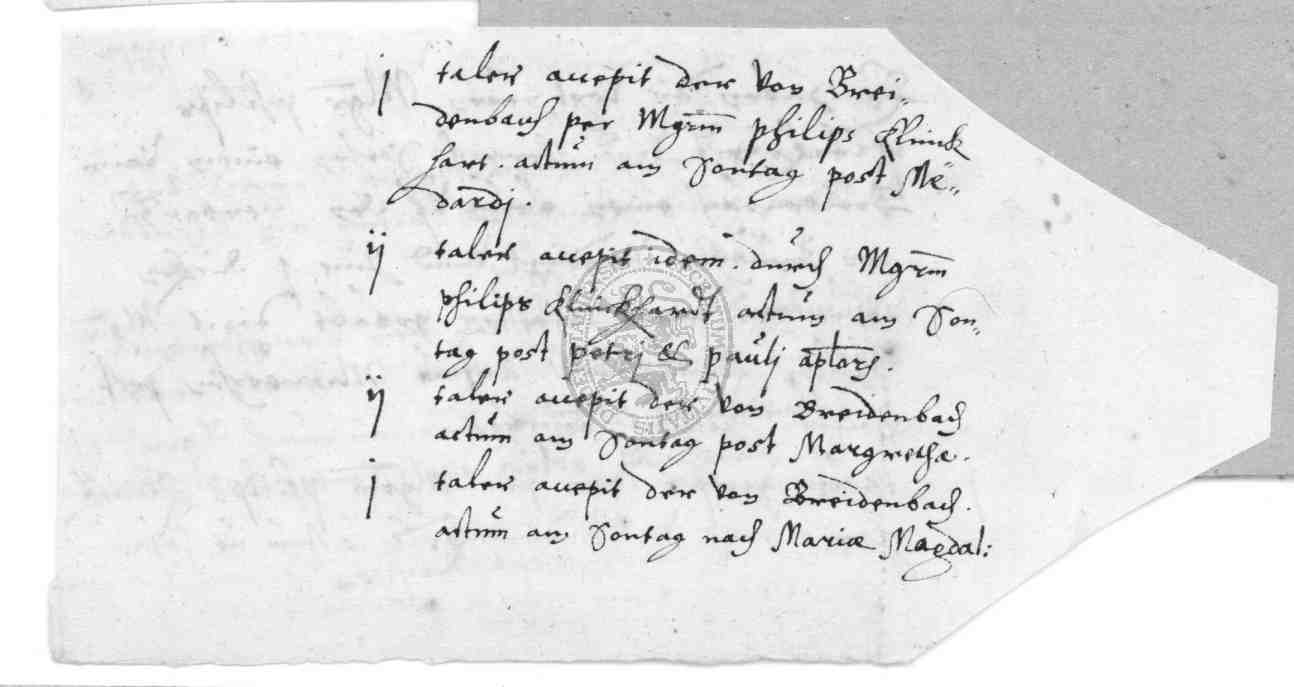 j talers accepit der von Brei-
denbach per Mgrm philips Klinck
hart. actum am Sontag post Me-
dardj.
ij talers accepit idem. durch Mgrm
philips Klinckhardt actum am Son-
tag post petrj & paulj aplors.
ij talers accepit der von Breidenbach
actum am Sontag post Margrethæ.
j talers accepit der von Breidenbach.
actum am Sontag nach Mariæ Magdal: